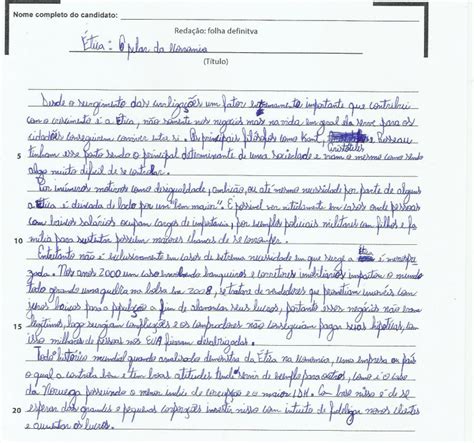 Nome completo do candidato:
Redação: folha definitva
Ética: O pilar da economia
(Título)
Desde o surgimento das civilizações um fator extremamente importante que contribui
com o crescimento é a Ética, não somente nos negócios mas na vida em geral ela serve para os
cidadões conseguirem conviver entre si. Os principais filósofos como Kant, Aristóteles e Rosseau
5 tinham esse ponto sendo o principal determinante de uma sociedade e nem o mesmo como sendo
algo muito difícil de se controlar.
Por inúmeros motivos como desigualdade, ambição, ou até mesmo necessidade por parte de alguns
a Ética é deixada de lado por um "bem maior". É possível ver nitidamente em casos onde pessoas
com baixos salários ocupam cargos de importância, por exemplo policiais militares com filhos e fa
10 mília para sustentar possuem maiores chances de se corromper.
Entretanto não é exclusivamente em casos de extrema necessidade em que surge a Ética é menospre
zada. Nos anos 2000 um caso envolvendo banqueiros e corretores imobiliários impactou o mundo
todo gerando uma quebra na bolsa em 2008, se tratava de vendedores que prometiam imóveis com
juros baixos para a população a fim de alavancar seus lucros, portanto esses negócios não eram
15 legítimos, logo surgiam complicações e os compradores não conseguiam pagar suas hipotecas, com
isso milhões de pessoas nos EUA ficaram desabrigados.
Toda história mundial quando analisada demonstra da Ética na economia, uma empresa ou país
o qual a controla bem e tem boas atitudes tende servir de exemplo para outros, como é o caso
da Noruega possuindo o menor índice de corrupção e o maior IDH. Com base nisso é de se
20 esperar das grandes e pequenas corporações investir nisso com intuito de fidelizar novos clientes
e aumentar os lucros.